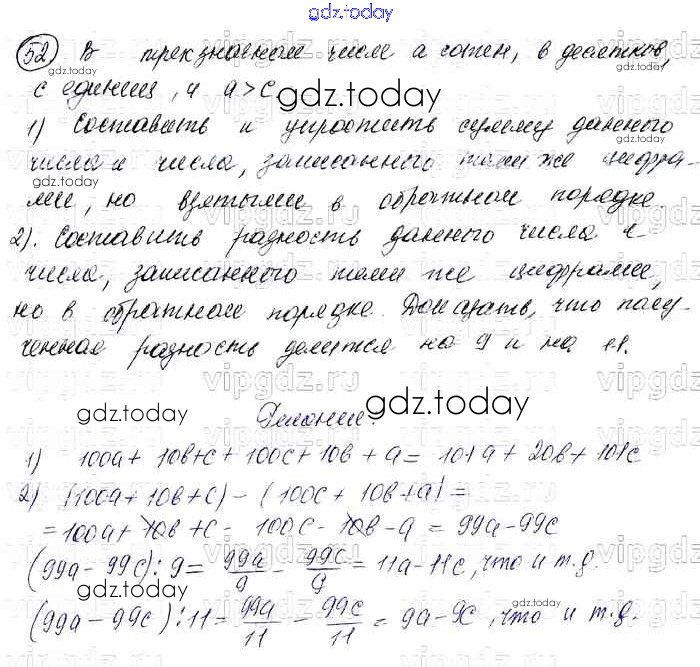 gdz.today
52 В трехзначном числе а сотен, в десятков,
с единиц, и а > с.
1) Составить и упростить сумму данного
числа и числа, записанного теми же цифра-
ми, но взятыми в обратном порядке.
2). Составить разность данного числа и
числа, записанного теми же цифрами,
но в обратном порядке. Доказать, что полу-
ченная разность делится на 9 и на 11.
Решение.
1) 100а + 10в + с + 100с + 10в + а = 101а + 20в + 101с
2) (100а + 10в + с) - (100с + 10в + а) =
= 100а + 10в + с - 100с - 10в - а = 99а - 99с
(99а - 99с) : 9 = 99а/9 - 99с/9 = 11а - 11с, что и т.д.
(99а - 99с) : 11 = 99а/11 - 99с/11 = 9а - 9с, что и т.д.